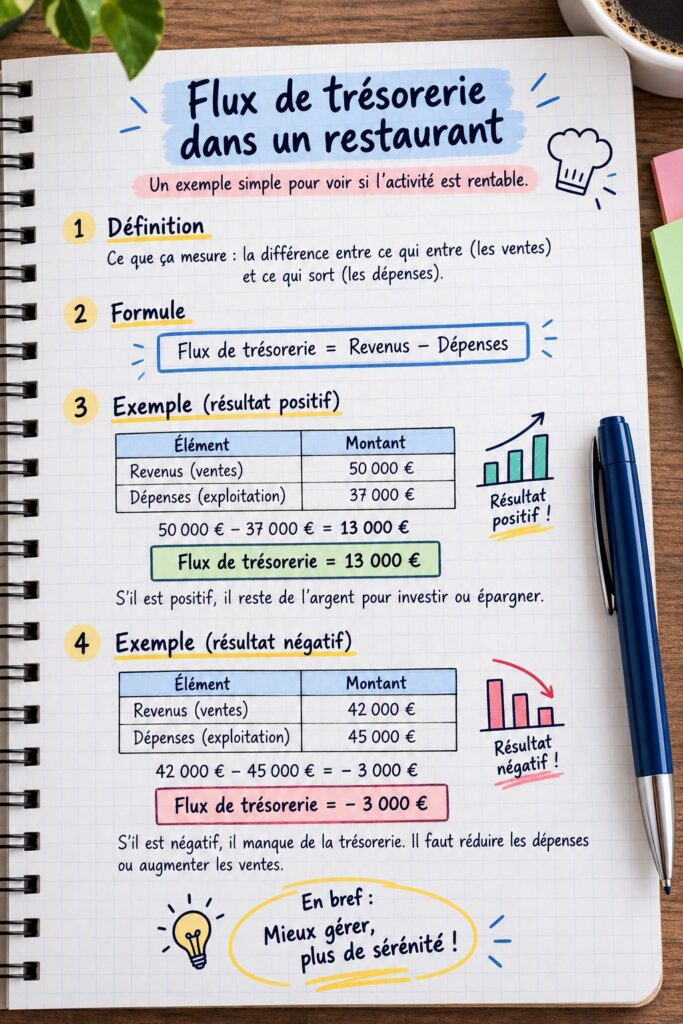 Flux de trésorerie
dans un restaurant
Un exemple simple pour voir si l'activité est rentable.
1 Définition
Ce que ça mesure : la différence entre ce qui entre (les ventes)
et ce qui sort (les dépenses).
2 Formule
Flux de trésorerie = Revenus – Dépenses
3 Exemple (résultat positif)
Élément Montant
Revenus (ventes) 50 000 €
Dépenses (exploitation) 37 000 €
Résultat
positif !
50 000 € – 37 000 € = 13 000 €
Flux de trésorerie = 13 000 €
S'il est positif, il reste de l'argent pour investir ou épargner.
4 Exemple (résultat négatif)
Élément Montant
Revenus (ventes) 42 000 €
Dépenses (exploitation) 45 000 €
Résultat
négatif !
42 000 € – 45 000 € = – 3 000 €
Flux de trésorerie = – 3 000 €
S'il est négatif, il manque de la trésorerie. Il faut réduire les dépenses
ou augmenter les ventes.
En bref :
Mieux gérer,
plus de sérénité !